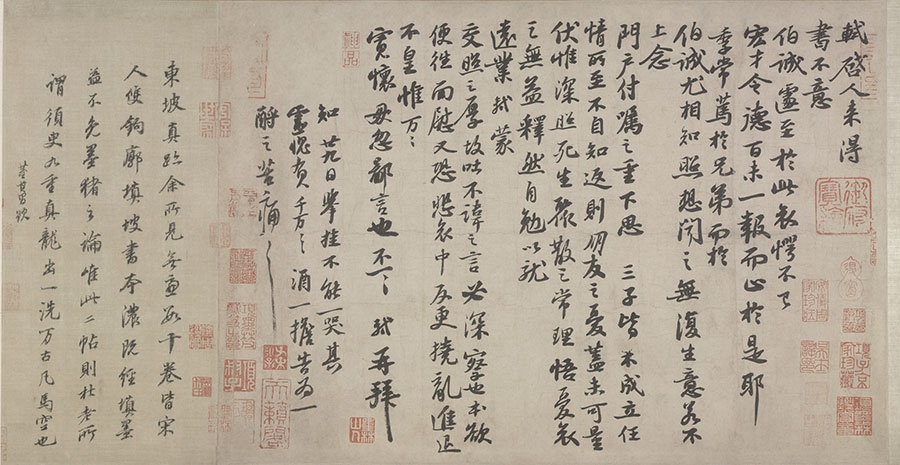 軾啓人来得
書不意
伯誠遽至於此哀愕不已
宏才令德百未一報而止於是耶
季常篤於兄弟而於
伯誠尤相知照想聞之無復生意若不
上念
門户付囑之重下思三子皆未成立任
情所至不自知返則朋友之憂蓋未可量
伏惟深照死生聚散之常理悟憂哀
之無益釋然自勉以就
遠業軾蒙
交照之厚故吐不諱之言必深察也本欲
便往面慰又恐悲哀中反更撓亂進退
不皇惟万々
寬懷毋忽鄙言也不一々軾再拜
知廿九日舉挂不能一哭其
靈愧負千万々酒一擔告爲一
酹之苦痛々
東坡真跡余所見無慮數十卷皆宋
人雙鉤廓填坡書本濃既經填墨
益不免墨豬之論惟此二帖則杜老所
謂須臾九重真龍出一洗万古凡馬空也
董其昌跋